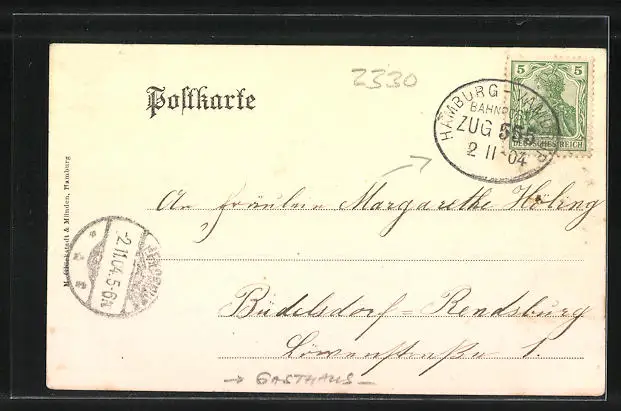 2330
5 5
DEUTSCHES REICH
HAMBURG -
BAHNPOST
ZUG 555
2 11 04
Postkarte
An Fräulein Margarethe Höling
Büdelsdorf = Rendsburg
Löwenstraße 1.
→ GASTHAUS -
-2.11.04.5-6N.
M. Glückstadt & Münden, Hamburg